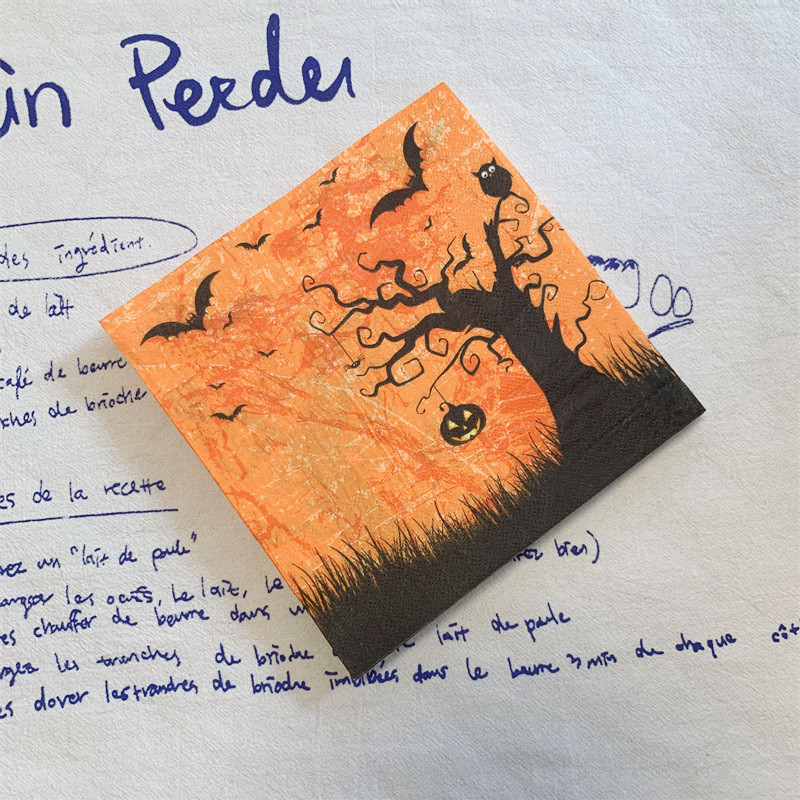 in Perder
des ingrédient.
de lait
café de beurre
ches de brioche
es de la recette
ez un "lait de poule"
angez les oeufs, le lait, le
es chauffer de beurre dans un
ez bien)
gez les tranches de brioche le lait de poule
es dorer les tranches de brioche imbibées dans le beurre 3 min de chaque côt